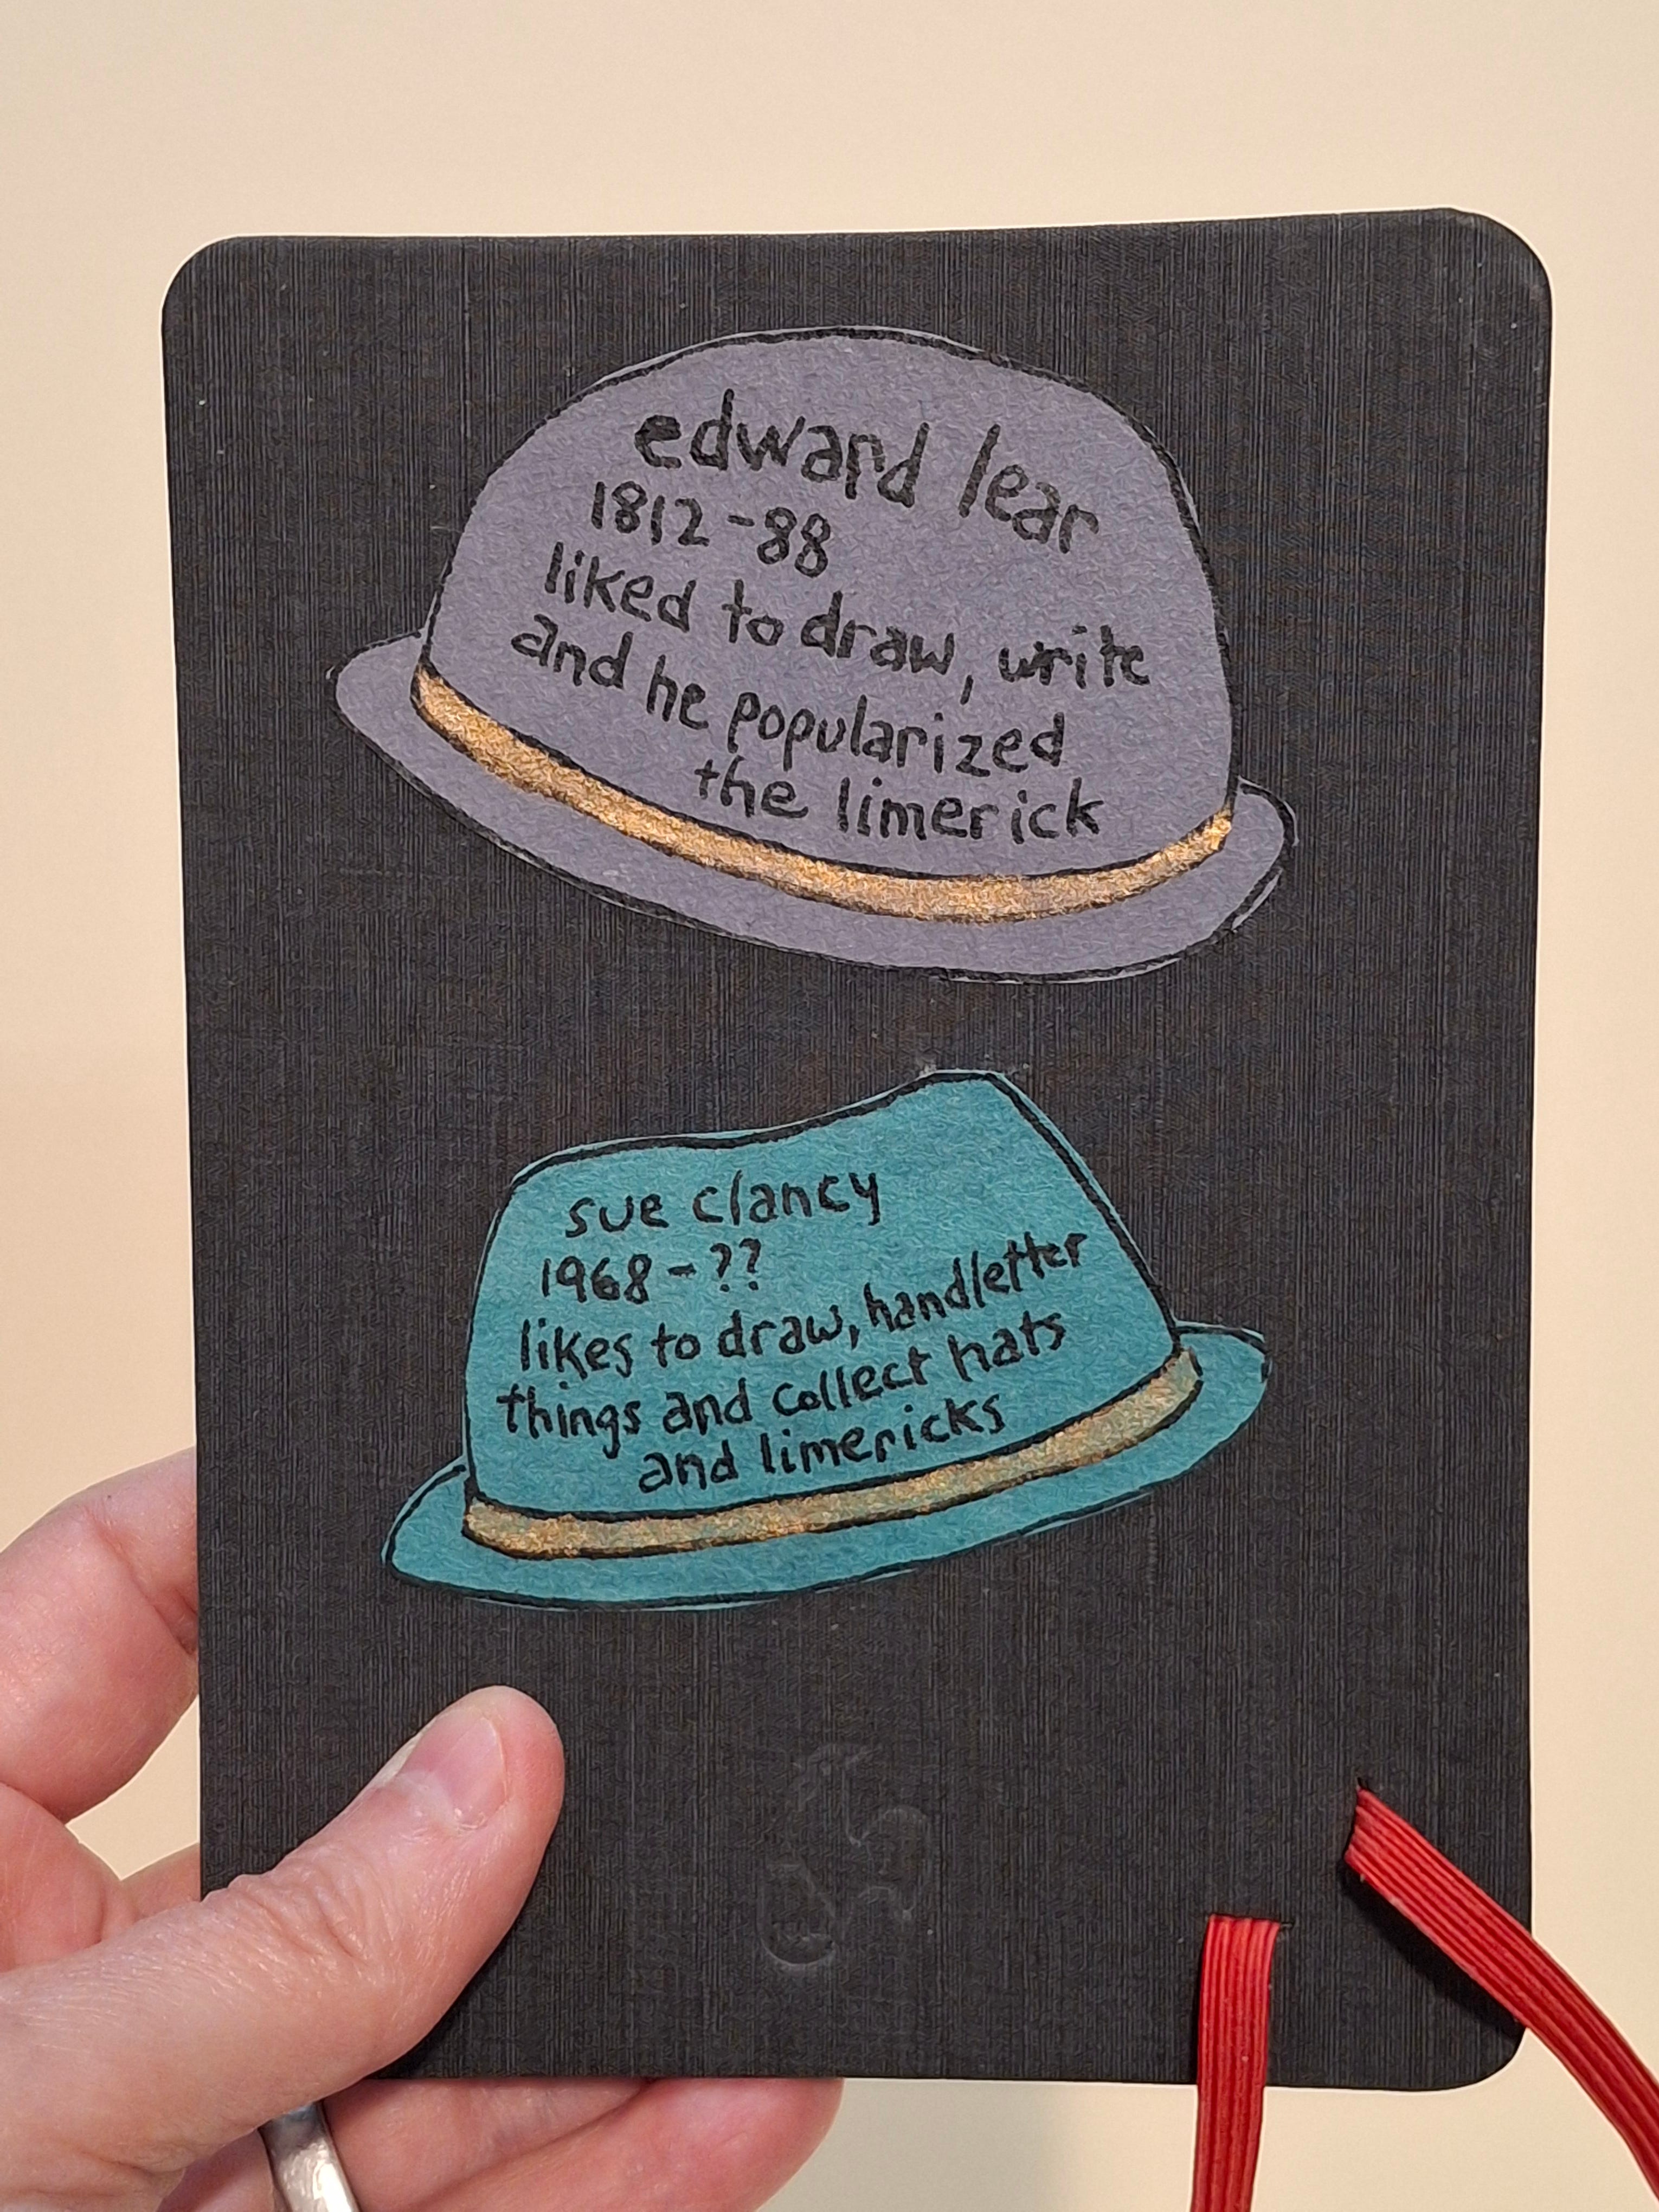 edward lear
1812-88
liked to draw, write
and he popularized
the limerick
sue clancy
1968-??
likes to draw, handletter
things and collect hats
and limericks